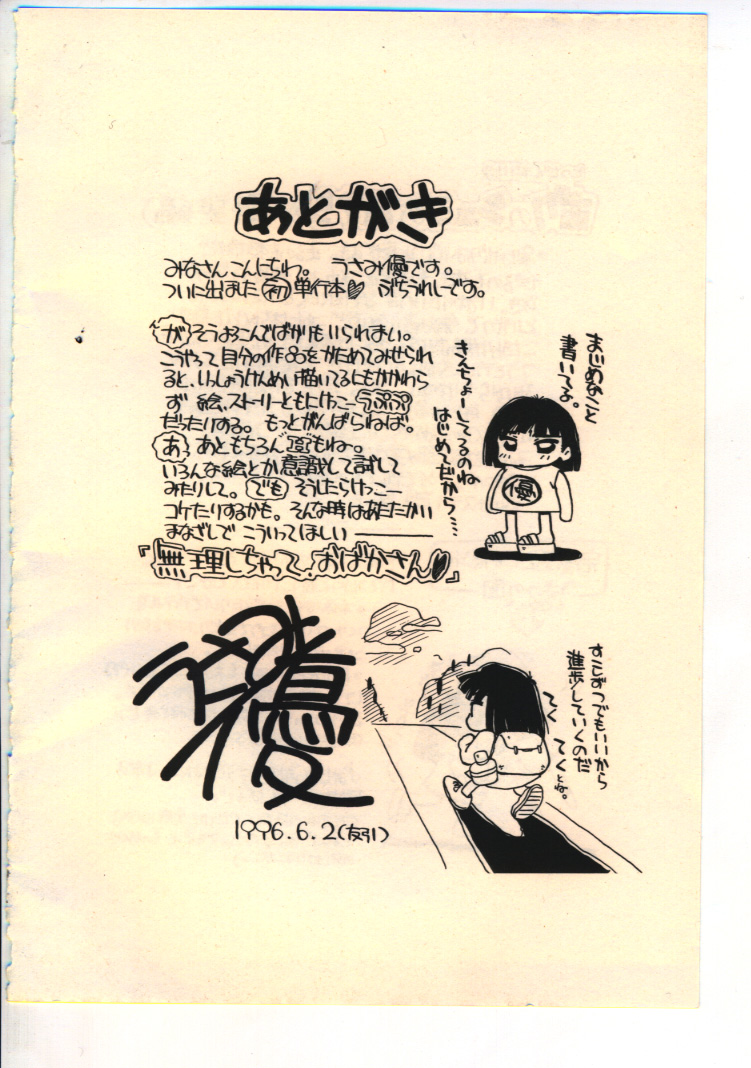 あとがき
みなさんこんにちわ。 うさみ優です。
ついに出ました 初 単行本♡ ぷちうれしーです。
が そうよろこんでばかりもいられまい。
こうやって自分の作品をかためてみせられ
ると、いっしょうけんめい描いてるにもかかわら
ず 絵、ストーリーともにけっこーうぷぷぷ
だったりする。 もっとがんばらねば。
あっ あともちろん 頭もね。
いろんな絵とか意識して試して
みたりして。でも そうしたらけっこー
コケたりするかも。そんな時はあたたかい
まなざしで こういってほしい ————
『無理しちゃって、おばかさん♡』
まじめなこと
書いてるよ。
きんちょーしてるのね
はじめてだから……
優
うさみ優
1996.6.2(友引)
すこしずつでもいいから
進歩していくのだ
てく
てくとね。